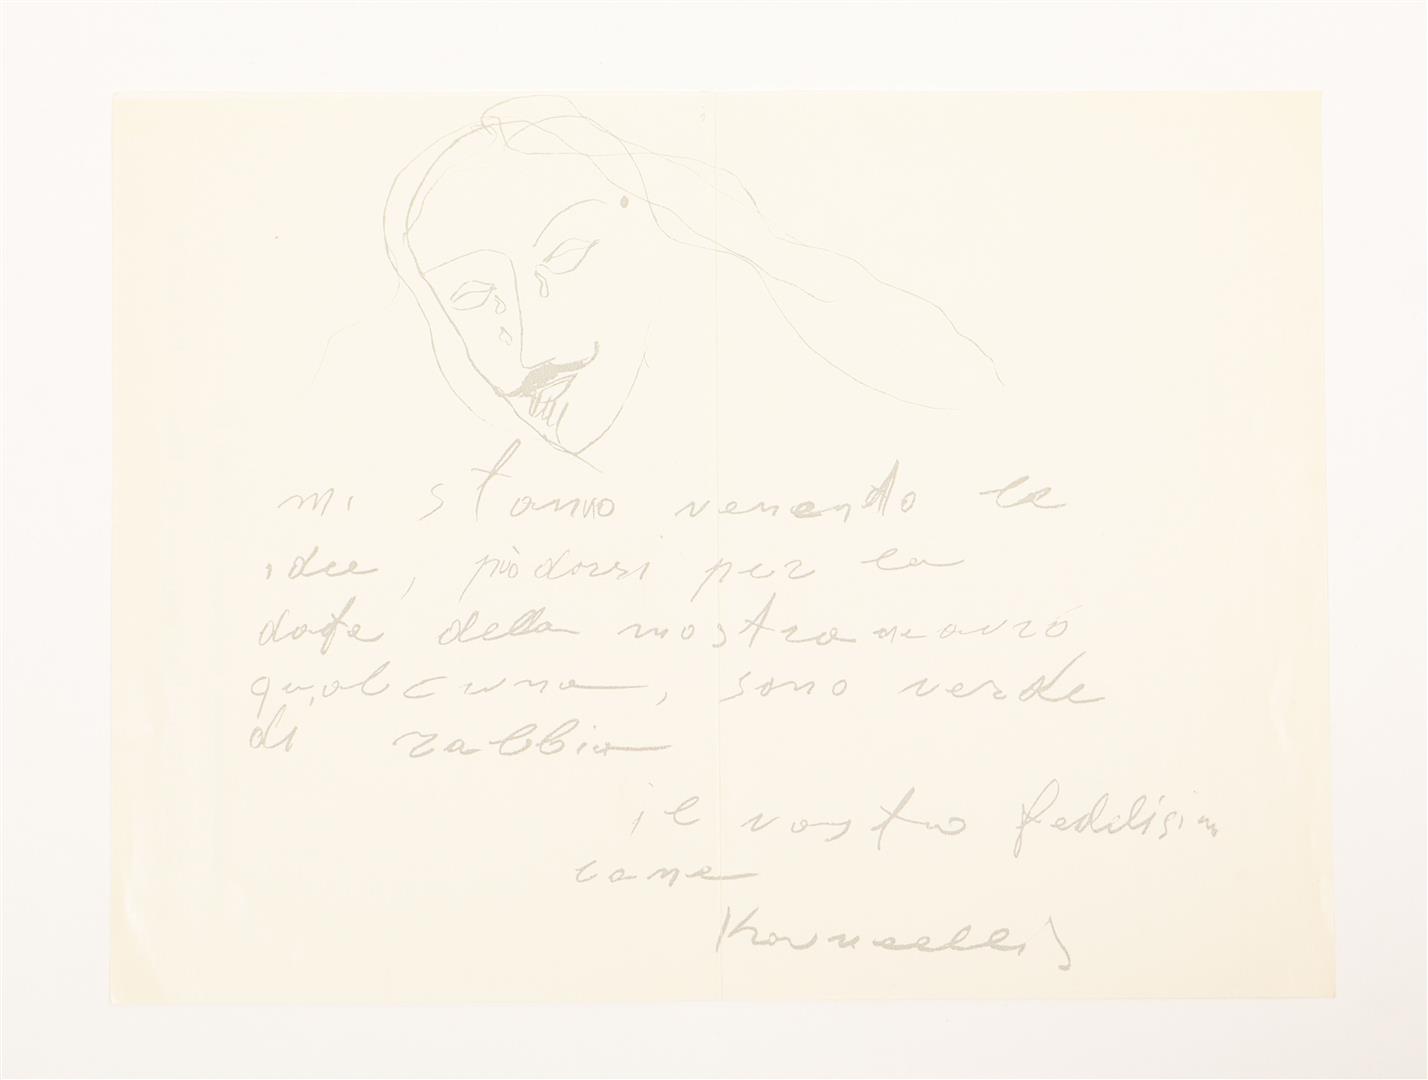 mi stanno venendo le
idee, più dorsi per la
data della mostra ne avrò
qualcuna, sono verde
di rabbia
il vostro fedelisimo
cane
Kounellis